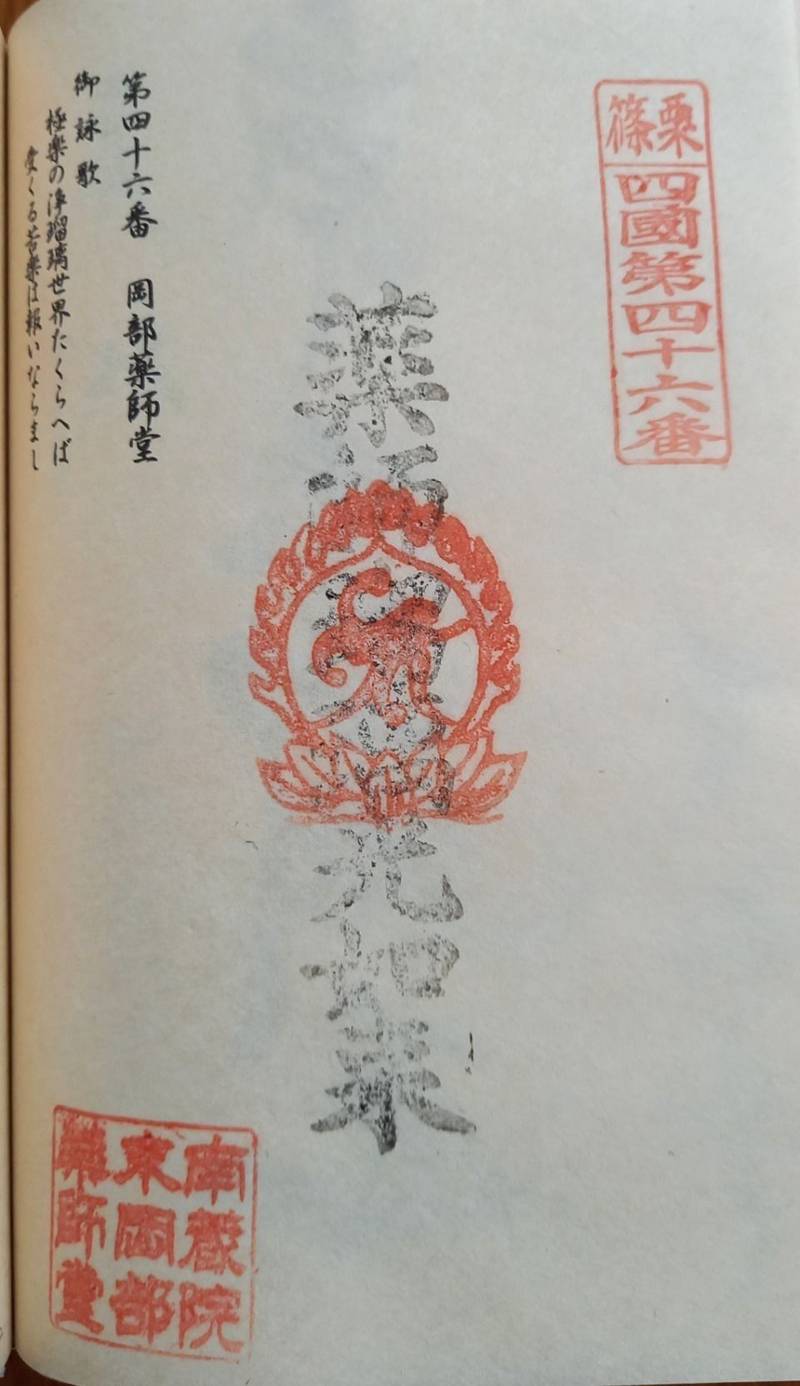 篠栗
四國第四十六番
薬師瑠璃光如来
第四十六番 岡部薬師堂
御詠歌
極楽の浄瑠璃世界たくらへば
受くる苦楽は報いならまし
南蔵院
東岡部
藥師堂